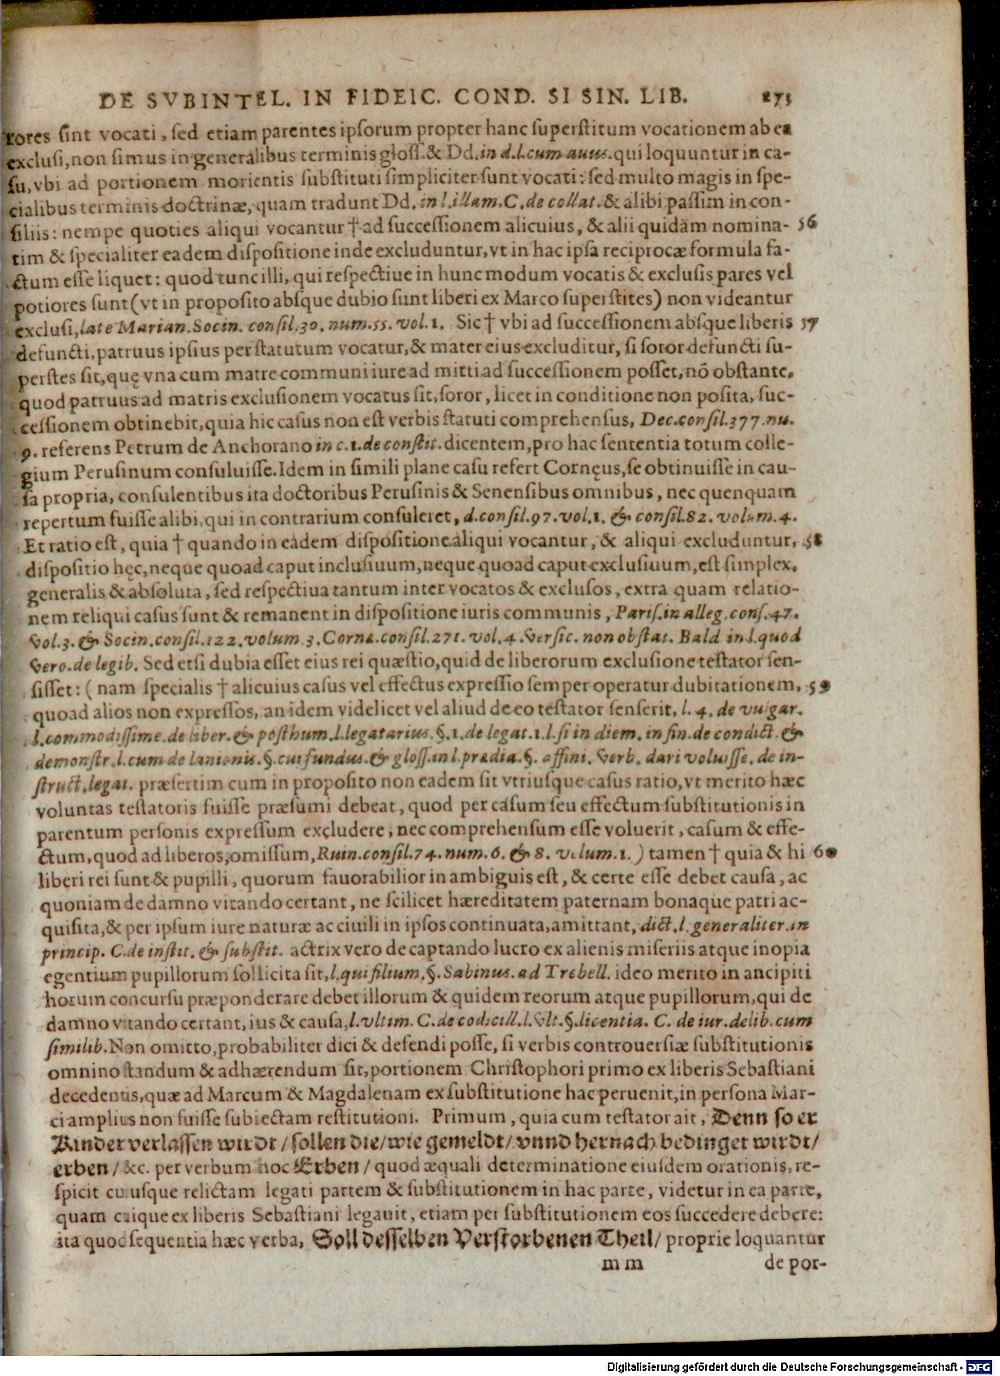 DE SVBINTEL. IN FIDEIC. COND. SI SIN. LIB. 273
rores sint vocati, sed etiam parentes ipsorum propter hanc superstitum vocationem ab ea
exclusi, non simus in generalibus terminis gloss. & Dd. in d.l. cum auus. qui loquuntur in ca-
su, vbi ad portionem morientis substituti simpliciter sunt vocati: sed multo magis in spe-
cialibus terminis doctrinæ, quam tradunt Dd. in l. illam. C. de collat. & alibi passim in con-
siliis: nempe quoties aliqui vocantur † ad successionem alicuius, & alii quidam nomina- 56
tim & specialiter eadem dispositione inde excluduntur, vt in hac ipsa reciprocæ formula fa-
ctum esse liquet: quod tunc illi, qui respectiue in hunc modum vocatis & exclusis pares vel
potiores sunt (vt in proposito absque dubio sunt liberi ex Marco superstites) non videantur
exclusi, late Marian. Socin. consil. 30. num. 55. vol. 1. Sic † vbi ad successionem absque liberis 57
defuncti, patruus ipsius per statutum vocatur, & mater eius excluditur, si soror defuncti su-
perstes sit, quę vna cum matre communi iure admitti ad successionem posset, nō obstante,
quod patruus ad matris exclusionem vocatus sit, soror, licet in conditione non posita, suc-
cessionem obtinebit, quia hic casus non est verbis statuti comprehensus, Dec. consil. 377. nu.
9. referens Petrum de Anchorano in c. 1. de constit. dicentem, pro hac sententia totum colle-
gium Perusinum consuluisse. Idem in simili plane casu refert Cornęus, se obtinuisse in cau-
sa propria, consulentibus ita doctoribus Perusinis & Senensibus omnibus, nec quenquam
repertum fuisse alibi, qui in contrarium consuleret, d. consil. 97. vol. 1. & consil. 82. volum. 4.
Et ratio est, quia † quando in eadem dispositione aliqui vocantur, & aliqui excluduntur, 58
dispositio hęc, neque quoad caput inclusiuum, neque quoad caput exclusiuum, est simplex,
generalis & absoluta, sed respectiua tantum inter vocatos & exclusos, extra quam relatio-
nem reliqui casus sunt & remanent in dispositione iuris communis, Paris. in alleg. cons. 47.
vol. 3. & Socin. consil. 122. volum. 3. Corne. consil. 271. vol. 4. versic. non obstat. Bald in l. quod
vero. de legib. Sed etsi dubia esset eius rei quæstio, quid de liberorum exclusione testator sen-
sisset: (nam specialis † alicuius casus vel effectus expressio semper operatur dubitationem, 59
quoad alios non expressos, an idem videlicet vel aliud de eo testator senserit, l. 4. de vulgar.
l. commodissime. de liber. & posthum. l. legatarius. §. 1. de legat. 1. l. si in diem. in fin. de condict. &
demonstr. l. cum de lanionis. §. cui fundus. & gloss. in l. prædia. §. affini. verb. dari voluisse. de in-
struct. legat. præsertim cum in proposito non eadem sit vtriusque casus ratio, vt merito hæc
voluntas testatoris fuisse præsumi debeat, quod per casum seu effectum substitutionis in
parentum personis expressum excludere, nec comprehensum esse voluerit, casum & effe-
ctum, quod ad liberos, omissum, Ruin. consil. 74. num. 6. & 8. volum. 1.) tamen † quia & hi 60
liberi rei sunt & pupilli, quorum fauorabilior in ambiguis est, & certe esse debet causa, ac
quoniam de damno vitando certant, ne scilicet hæreditatem paternam bonaque patri ac-
quisita, & per ipsum iure naturæ ac ciuili in ipsos continuata, amittant, dict. l. generaliter. in
princip. C. de instit. & substit. actrix vero de captando lucro ex alienis miseriis atque inopia
egentium pupillorum sollicita sit, l. qui filium. §. Sabinus. ad Trebell. ideo merito in ancipiti
horum concursu præponderare debet illorum & quidem reorum atque pupillorum, qui de
damno vitando certant, ius & causa, l. vltim. C. de codicill. l. vlt. §. licentia. C. de iur. delib. cum
similib. Non omitto, probabiliter dici & defendi posse, si verbis controuersiæ substitutionis
omnino standum & adhærendum sit, portionem Christophori primo ex liberis Sebastiani
decedentis, quæ ad Marcum & Magdalenam ex substitutione hac peruenit, in persona Mar-
ci amplius non fuisse subiectam restitutioni. Primum, quia cum testator ait, Denn so er
Kinder verlassen wirdt / sollen die / wie gemeldt / vnnd hernach bedinget wirdt /
erben / &c. per verbum hoc Erben / quod æquali determinatione eiusdem orationis, re-
spicit cuiusque relictam legati partem & substitutionem in hac parte, videtur in ea parte,
quam cuique ex liberis Sebastiani legauit, etiam per substitutionem eos succedere debere:
ita quod sequentia hæc verba, Soll desselben Verstorbenen Theil / proprie loquantur
mm de por-
Digitalisierung gefördert durch die Deutsche Forschungsgemeinschaft - DFG